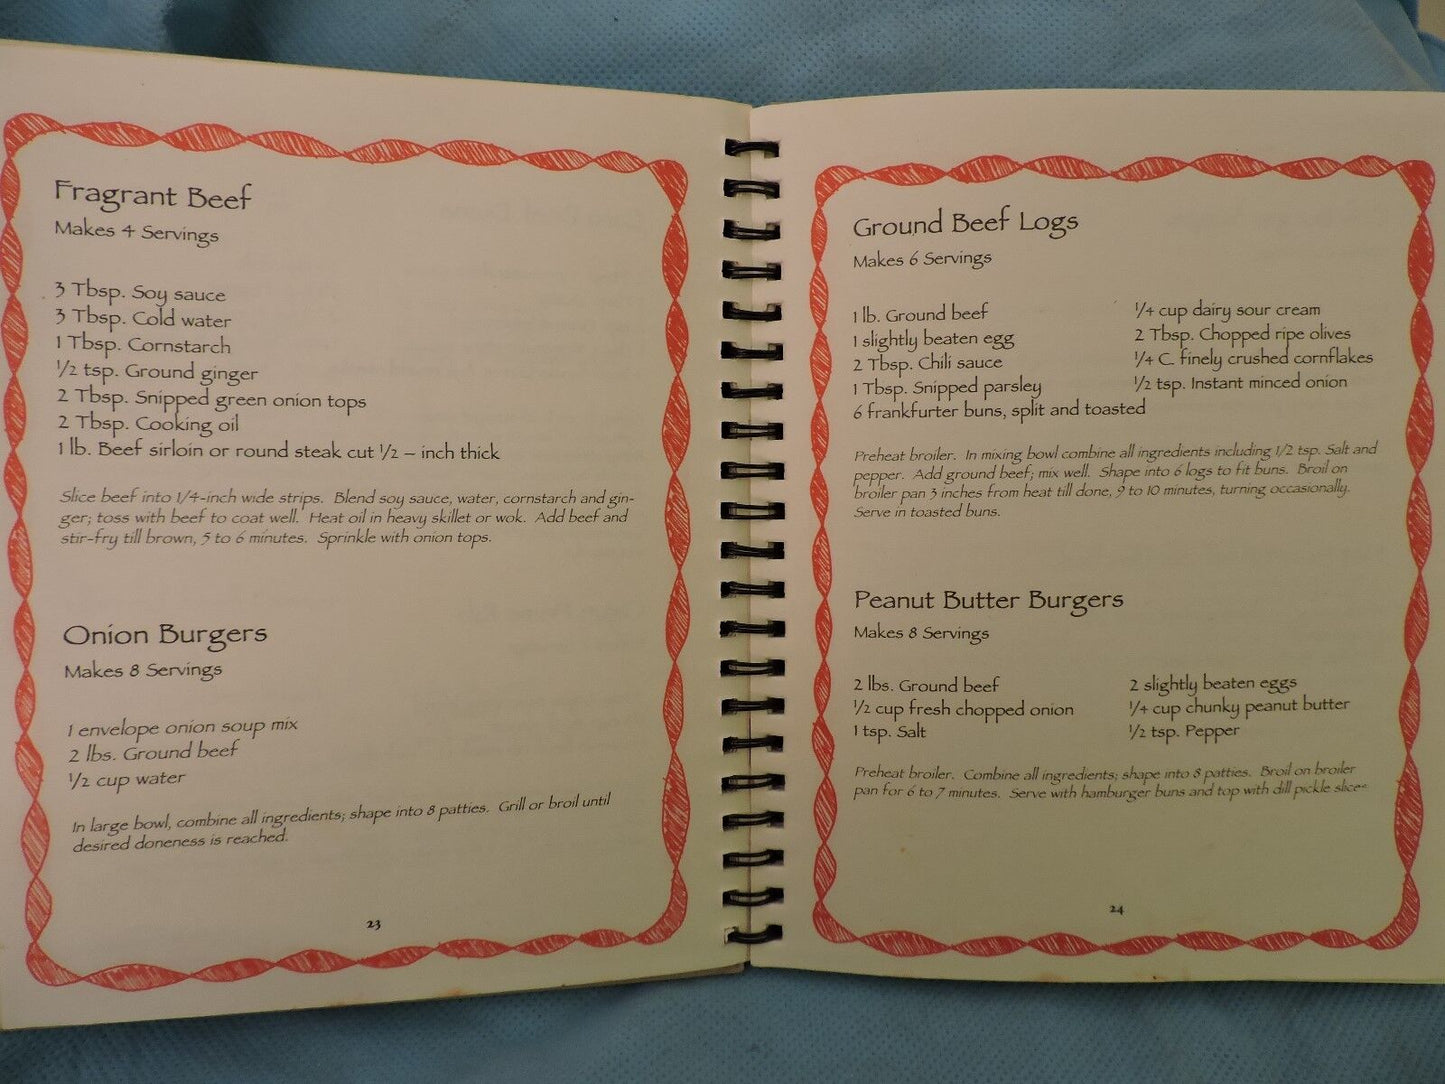 Fragrant Beef
Makes 4 Servings
3 Tbsp. Soy sauce
3 Tbsp. Cold water
1 Tbsp. Cornstarch
1/2 tsp. Ground ginger
2 Tbsp. Snipped green onion tops
2 Tbsp. Cooking oil
1 lb. Beef sirloin or round steak cut 1/2 – inch thick
Slice beef into 1/4-inch wide strips. Blend soy sauce, water, cornstarch and gin-
ger; toss with beef to coat well. Heat oil in heavy skillet or wok. Add beef and
stir-fry till brown, 5 to 6 minutes. Sprinkle with onion tops.
Onion Burgers
Makes 8 Servings
1 envelope onion soup mix
2 lbs. Ground beef
1/2 cup water
In large bowl, combine all ingredients; shape into 8 patties. Grill or broil until
desired doneness is reached.
23
Ground Beef Logs
Makes 6 Servings
1 lb. Ground beef
1 slightly beaten egg
2 Tbsp. Chili sauce
1 Tbsp. Snipped parsley
6 frankfurter buns, split and toasted
1/4 cup dairy sour cream
2 Tbsp. Chopped ripe olives
1/4 C. finely crushed cornflakes
1/2 tsp. Instant minced onion
Preheat broiler. In mixing bowl combine all ingredients including 1/2 tsp. Salt and
pepper. Add ground beef; mix well. Shape into 6 logs to fit buns. Broil on
broiler pan 3 inches from heat till done, 9 to 10 minutes, turning occasionally.
Serve in toasted buns.
Peanut Butter Burgers
Makes 8 Servings
2 lbs. Ground beef
1/2 cup fresh chopped onion
1 tsp. Salt
2 slightly beaten eggs
1/4 cup chunky peanut butter
1/2 tsp. Pepper
Preheat broiler. Combine all ingredients; shape into 8 patties. Broil on broiler
pan for 6 to 7 minutes. Serve with hamburger buns and top with dill pickle slices
24